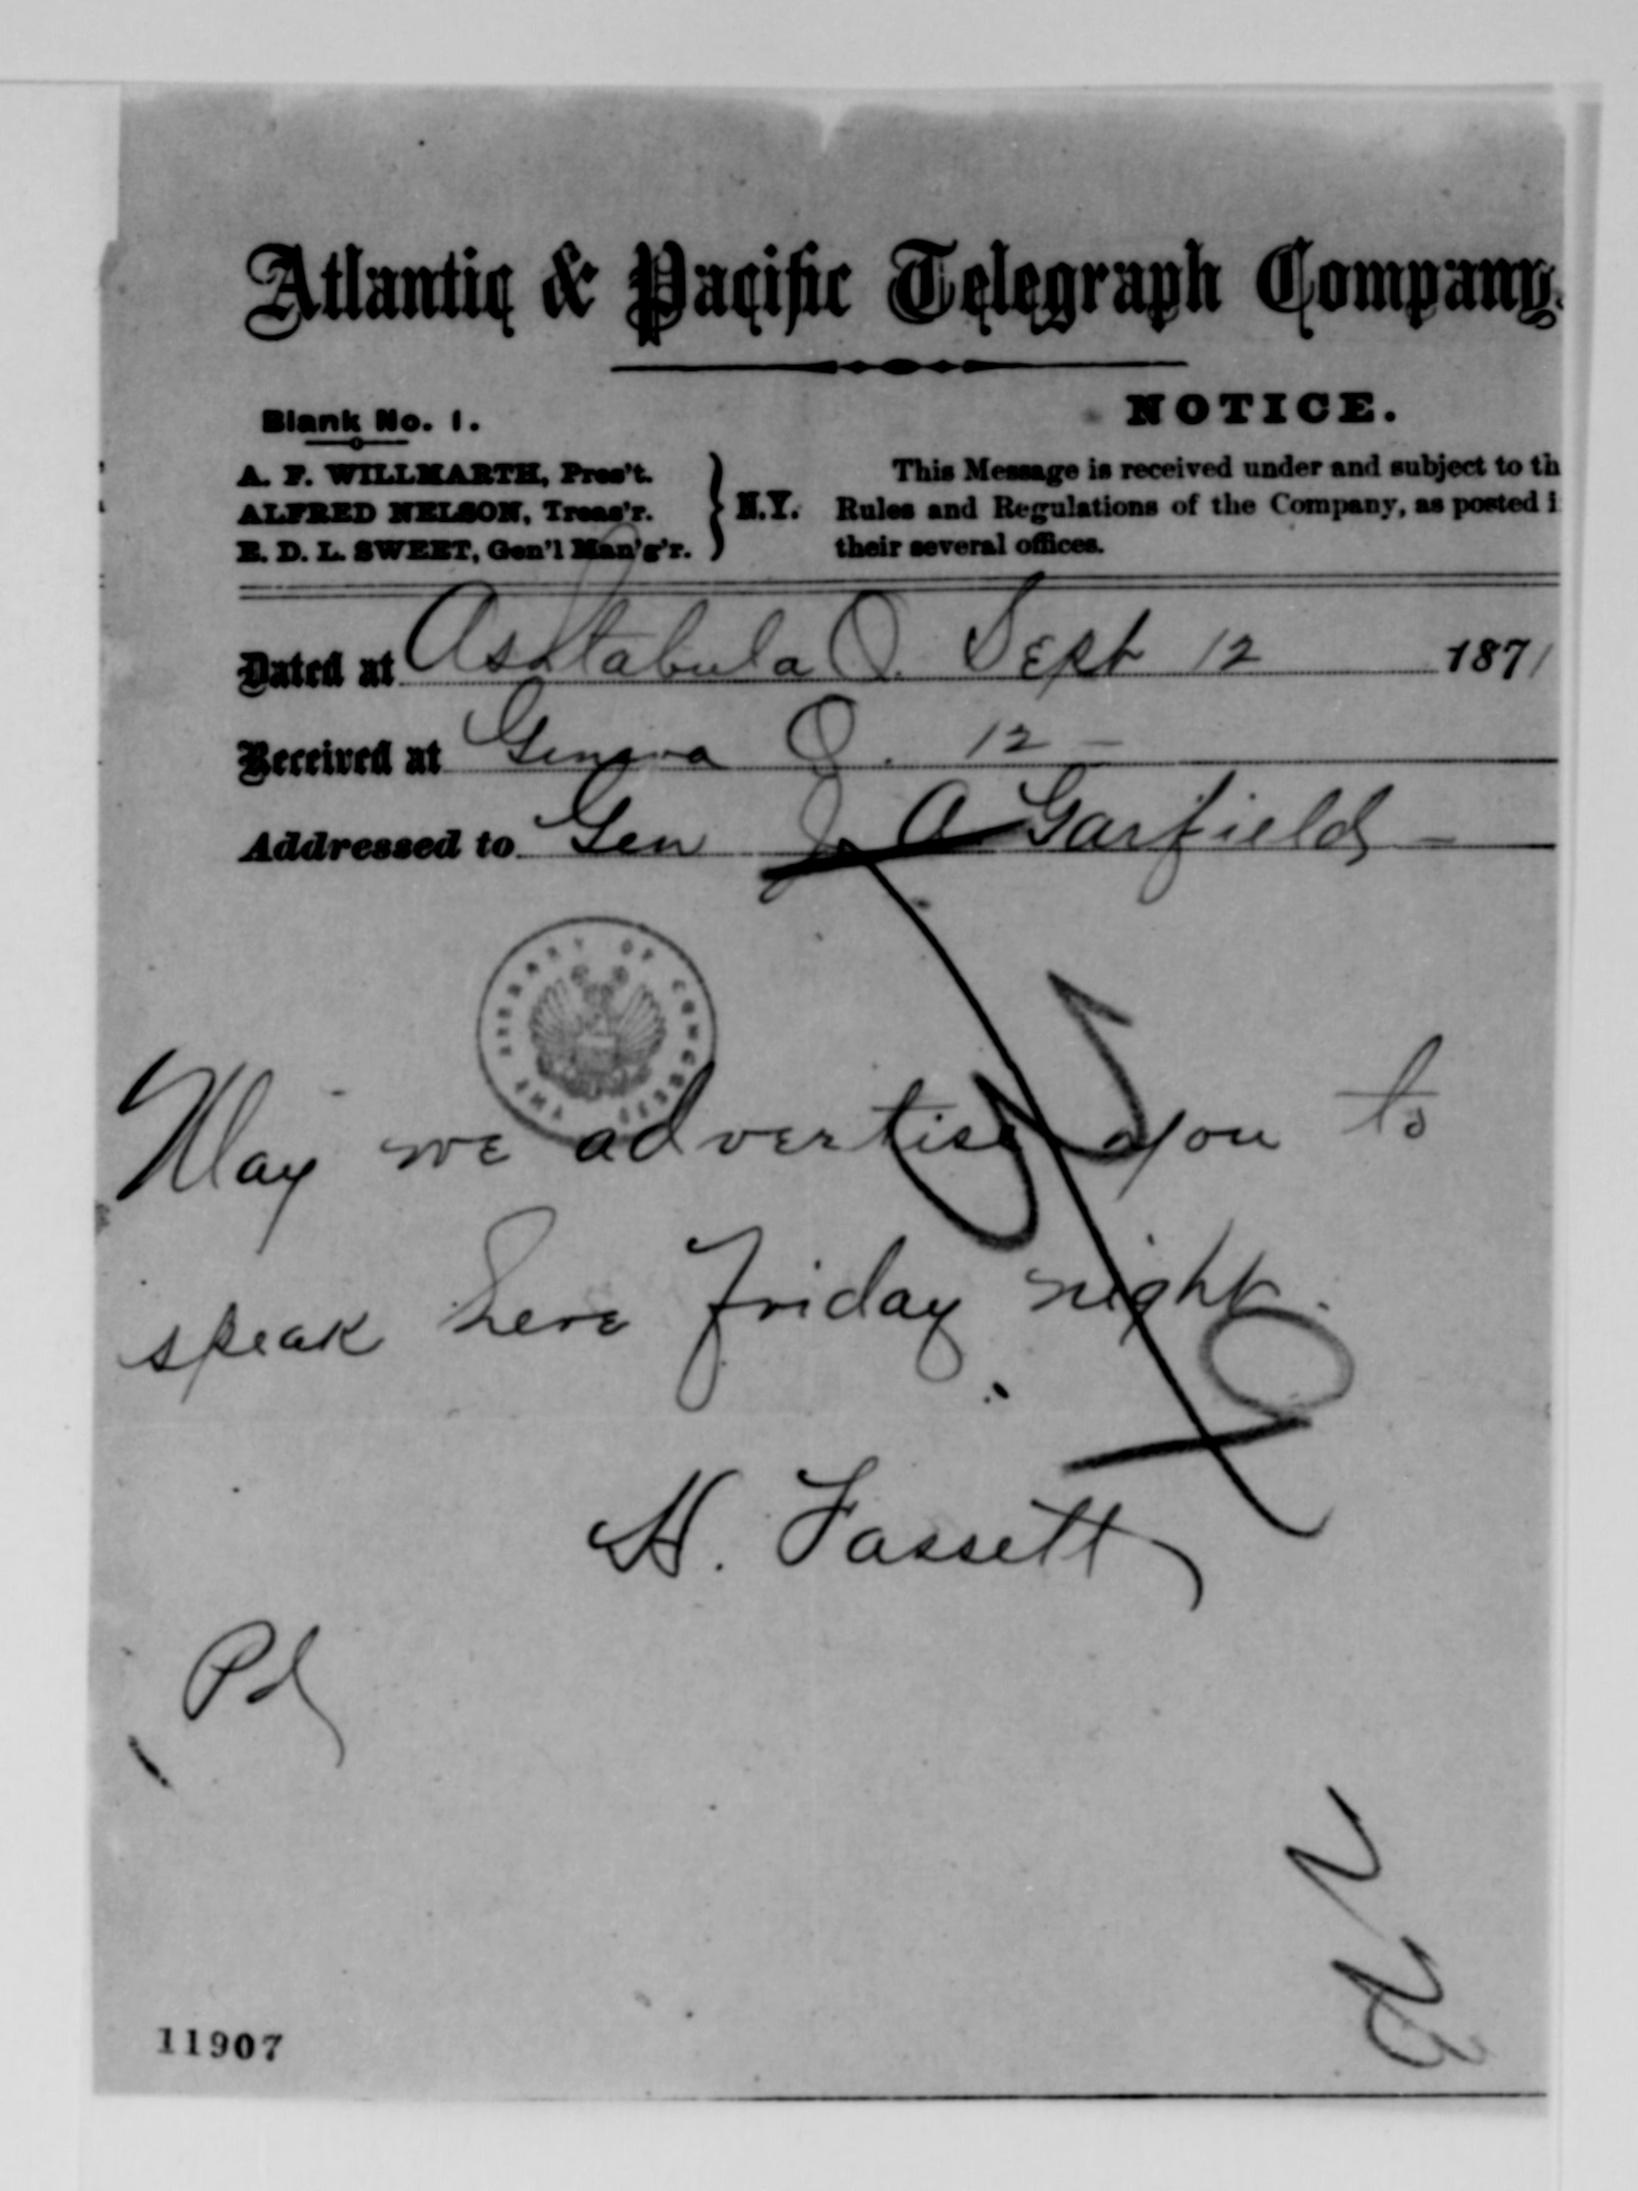 Atlantic & Pacific Telegraph Company.
Blank No. 1.
NOTICE.
A. F. WILLMARTH, Pres't.
ALFRED NELSON, Treas'r.
E. D. L. SWEET, Gen'l Man'g'r.
} N.Y.
This Message is received under and subject to th
Rules and Regulations of the Company, as posted i
their several offices.
Dated at Ashtabula O. Sept 12 1871
Received at Geneva O. 12 –
Addressed to Gen J A Garfield –
THE LIBRARY OF CONGRESS
May we advertise you to
speak here Friday night.
H. Fassett
Pd
11907